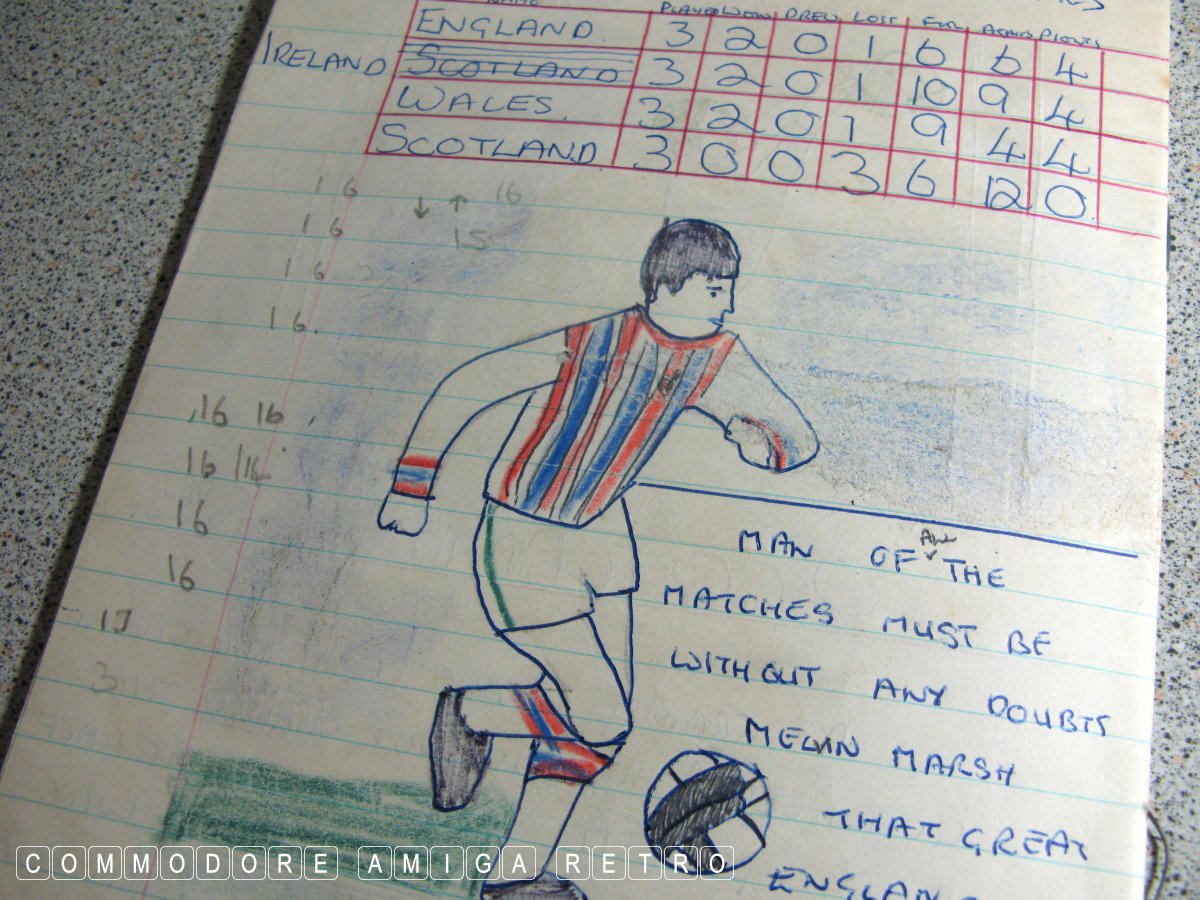 NAME PLAYED WON DREW LOST FOR AGAINST POINTS
ENGLAND. 3 2 0 1 6 6 4
IRELAND SCOTLAND 3 2 0 1 10 9 4
WALES. 3 2 0 1 9 4 4
SCOTLAND 3 0 0 3 6 12 0.
16 ↓ ↑ 16
16 15
16
16.
16 16
16
16
16
3
MAN OF ALL THE
MATCHES MUST BE
WITHOUT ANY DOUBTS
MELVIN MARSH
THAT GREAT
COMMODORE AMIGA RETRO